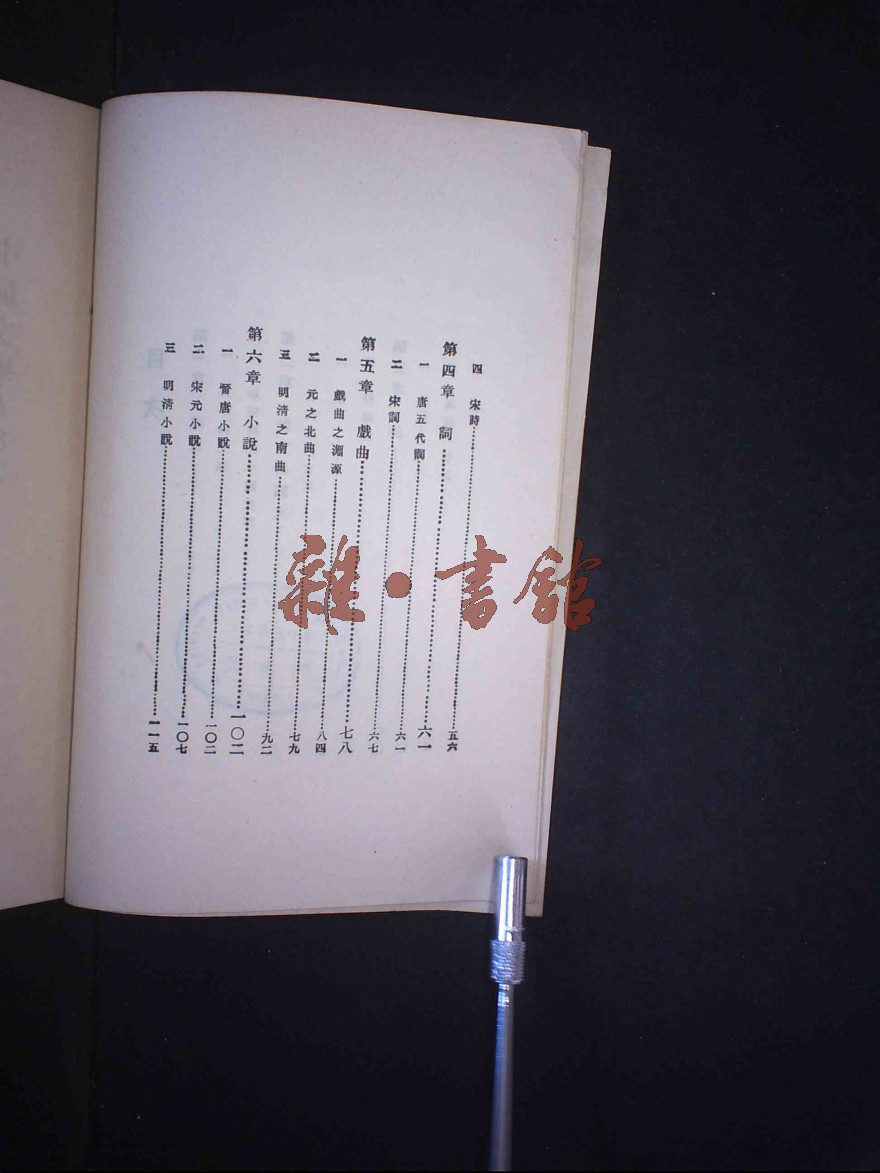 四 宋詩……五六
第四章 詞……六一
一 唐五代詞……六一
二 宋詞……六七
第五章 戲曲……七八
一 戲曲之淵源……七八
二 元之北曲……八四
三 明清之南曲……九二
第六章 小說……一〇二
一 晉唐小說……一〇二
二 宋元小說……一〇七
三 明清小說……一一五
雜·書館